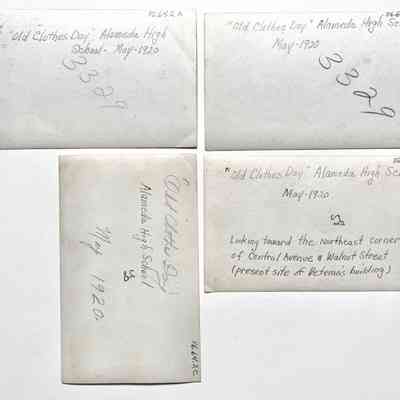 16642A
"Old Clothes Day" Alameda High
School - May - 1920
3329
"Old Clothes Day" Alameda High Sc
May - 1920
3329
(Old Clothes Day)
Alameda High School
May 1920
"Old Clothes Day" Alameda High Sc
May - 1920
Looking toward the northeast corner
of Central Avenue & Walnut Street
(present site of Veteran's building)